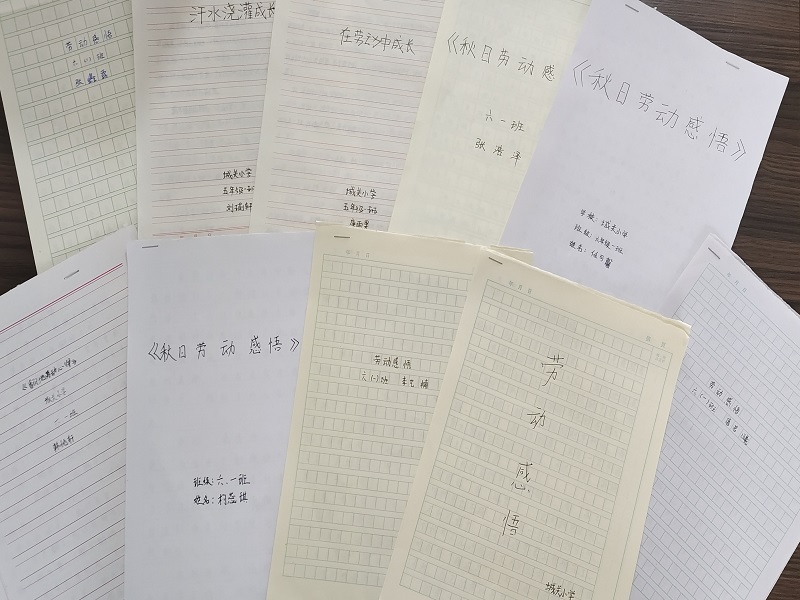 劳动感悟
六(一)班
张
汗水浇灌成长
城关小学
五年级一班
在劳动中成长
城关小学
五年级一班
《秋日劳动感
六一班
张浩泽
《秋日劳动感悟》
学校：城关小学
班级：六年级一班
姓名：任
六一班
《秋日劳动感悟》
班级：六、一班
姓名：
劳动感悟
六(一)班 李
劳
动
感
悟
城关小学
劳动感悟
六(一)班